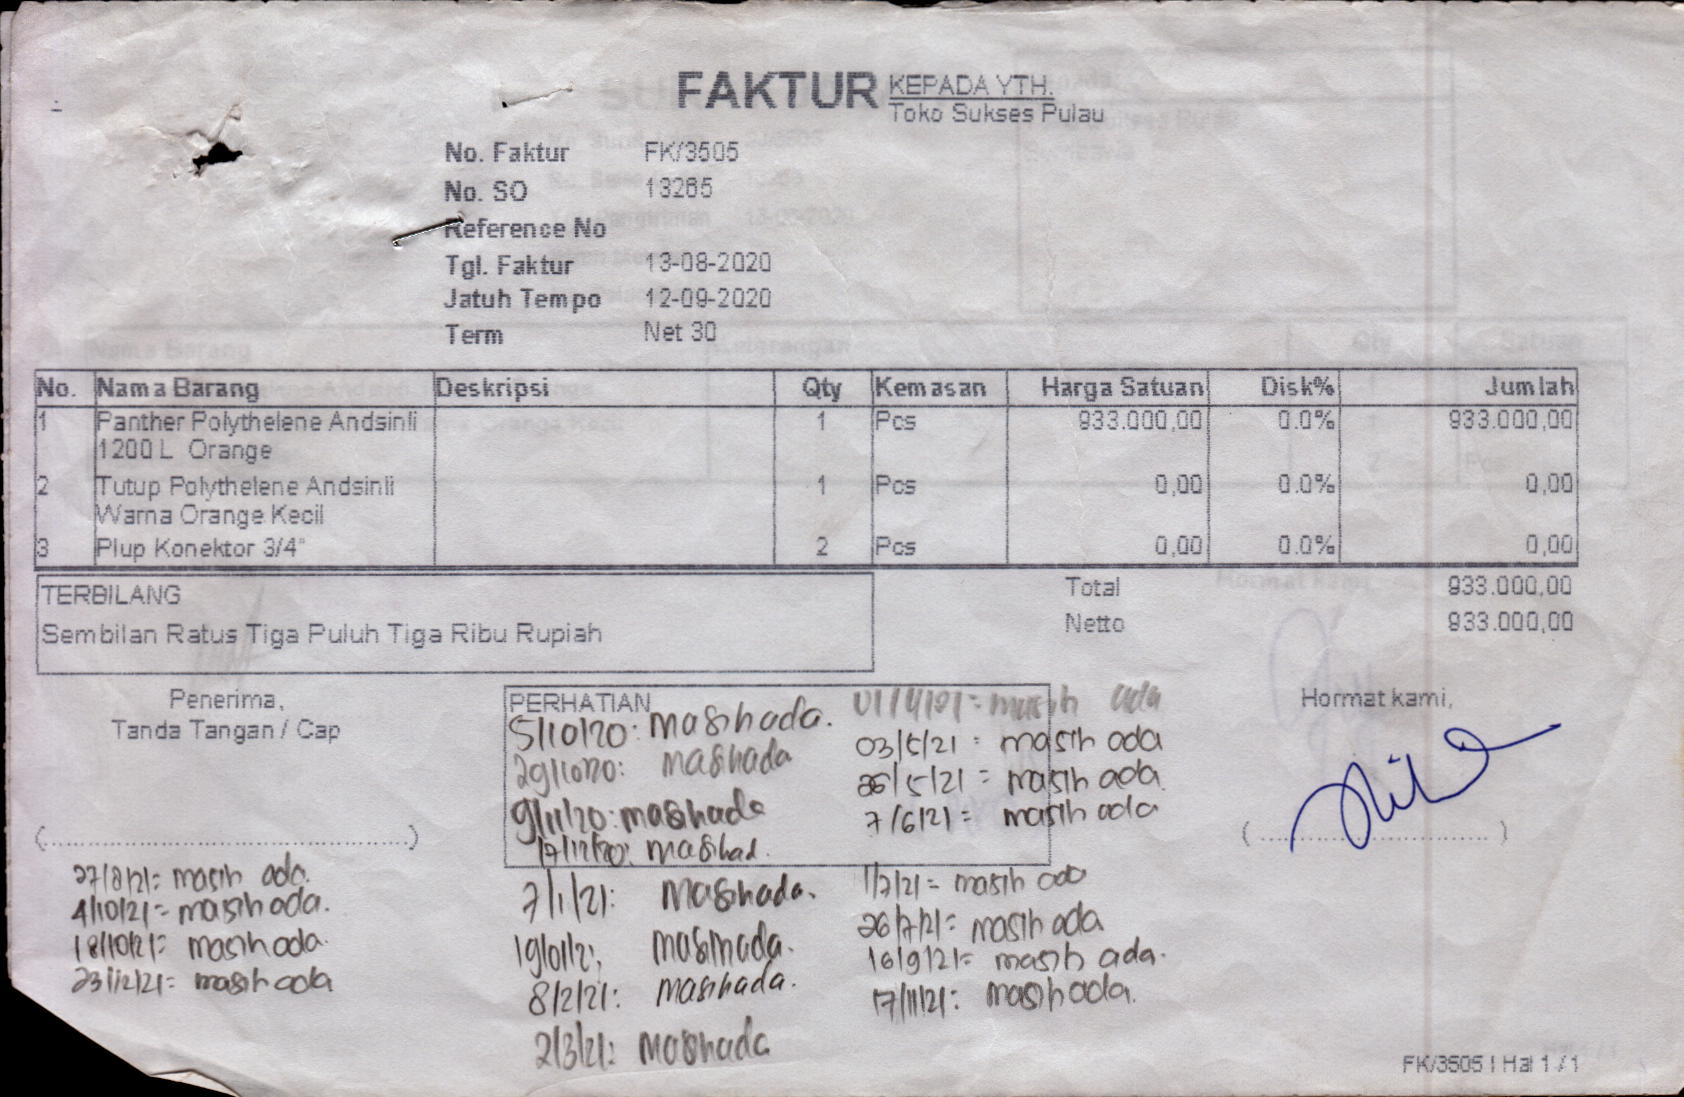 FAKTUR
KEPADA YTH.
Toko Sukses Pulau
No. Faktur FK/3505
No. SO 13265
Reference No
Tgl. Faktur 13-08-2020
Jatuh Tempo 12-09-2020
Term Net 30
No. Nama Barang Deskripsi Qty Kemasan Harga Satuan Disk% Jumlah
1 Panther Polythelene Andsinli 1 Pcs 933.000,00 0.0% 933.000,00
1200 L Orange
2 Tutup Polythelene Andsinli 1 Pcs 0,00 0.0% 0,00
Warna Orange Kecil
3 Plup Konektor 3/4" 2 Pcs 0,00 0.0% 0,00
TERBILANG
Sembilan Ratus Tiga Puluh Tiga Ribu Rupiah
Total 933.000,00
Netto 933.000,00
Penerima,
Tanda Tangan / Cap
(..........................................................)
27/8/21= masih ada.
4/10/21= masih ada.
18/10/21= masih ada.
23/12/21= masih ada
PERHATIAN
5/10/20: masih ada.
29/10/20: masih ada
9/11/20: masih ada
17/12/20: masih ad.
7/1/21: masih ada.
19/01/21: masih ada.
8/2/21: masih ada.
2/3/21: masih ada
01/4/21= masih ada
03/5/21= masih ada
26/5/21= masih ada.
7/6/21= masih ada
1/7/21= masih ada
26/7/21= masih ada
16/9/21= masih ada.
17/11/21: masih ada.
Hormat kami,
(......................................)
FK/3505 | Hal 1 / 1